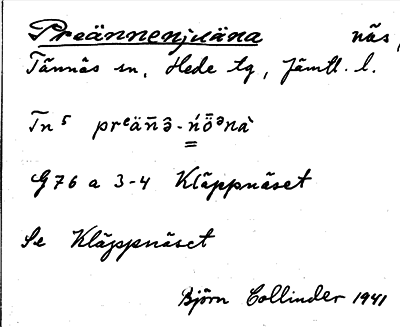 Preännenjuäna näs,
Tännäs sn, Hede tg, Jämtl. l.
Tn⁵ prᵉän̄ə̄-ńȫᵊnà
G 76 a 3-4 Kläppnäset
Se Kläppnäset
Björn Collinder 1941